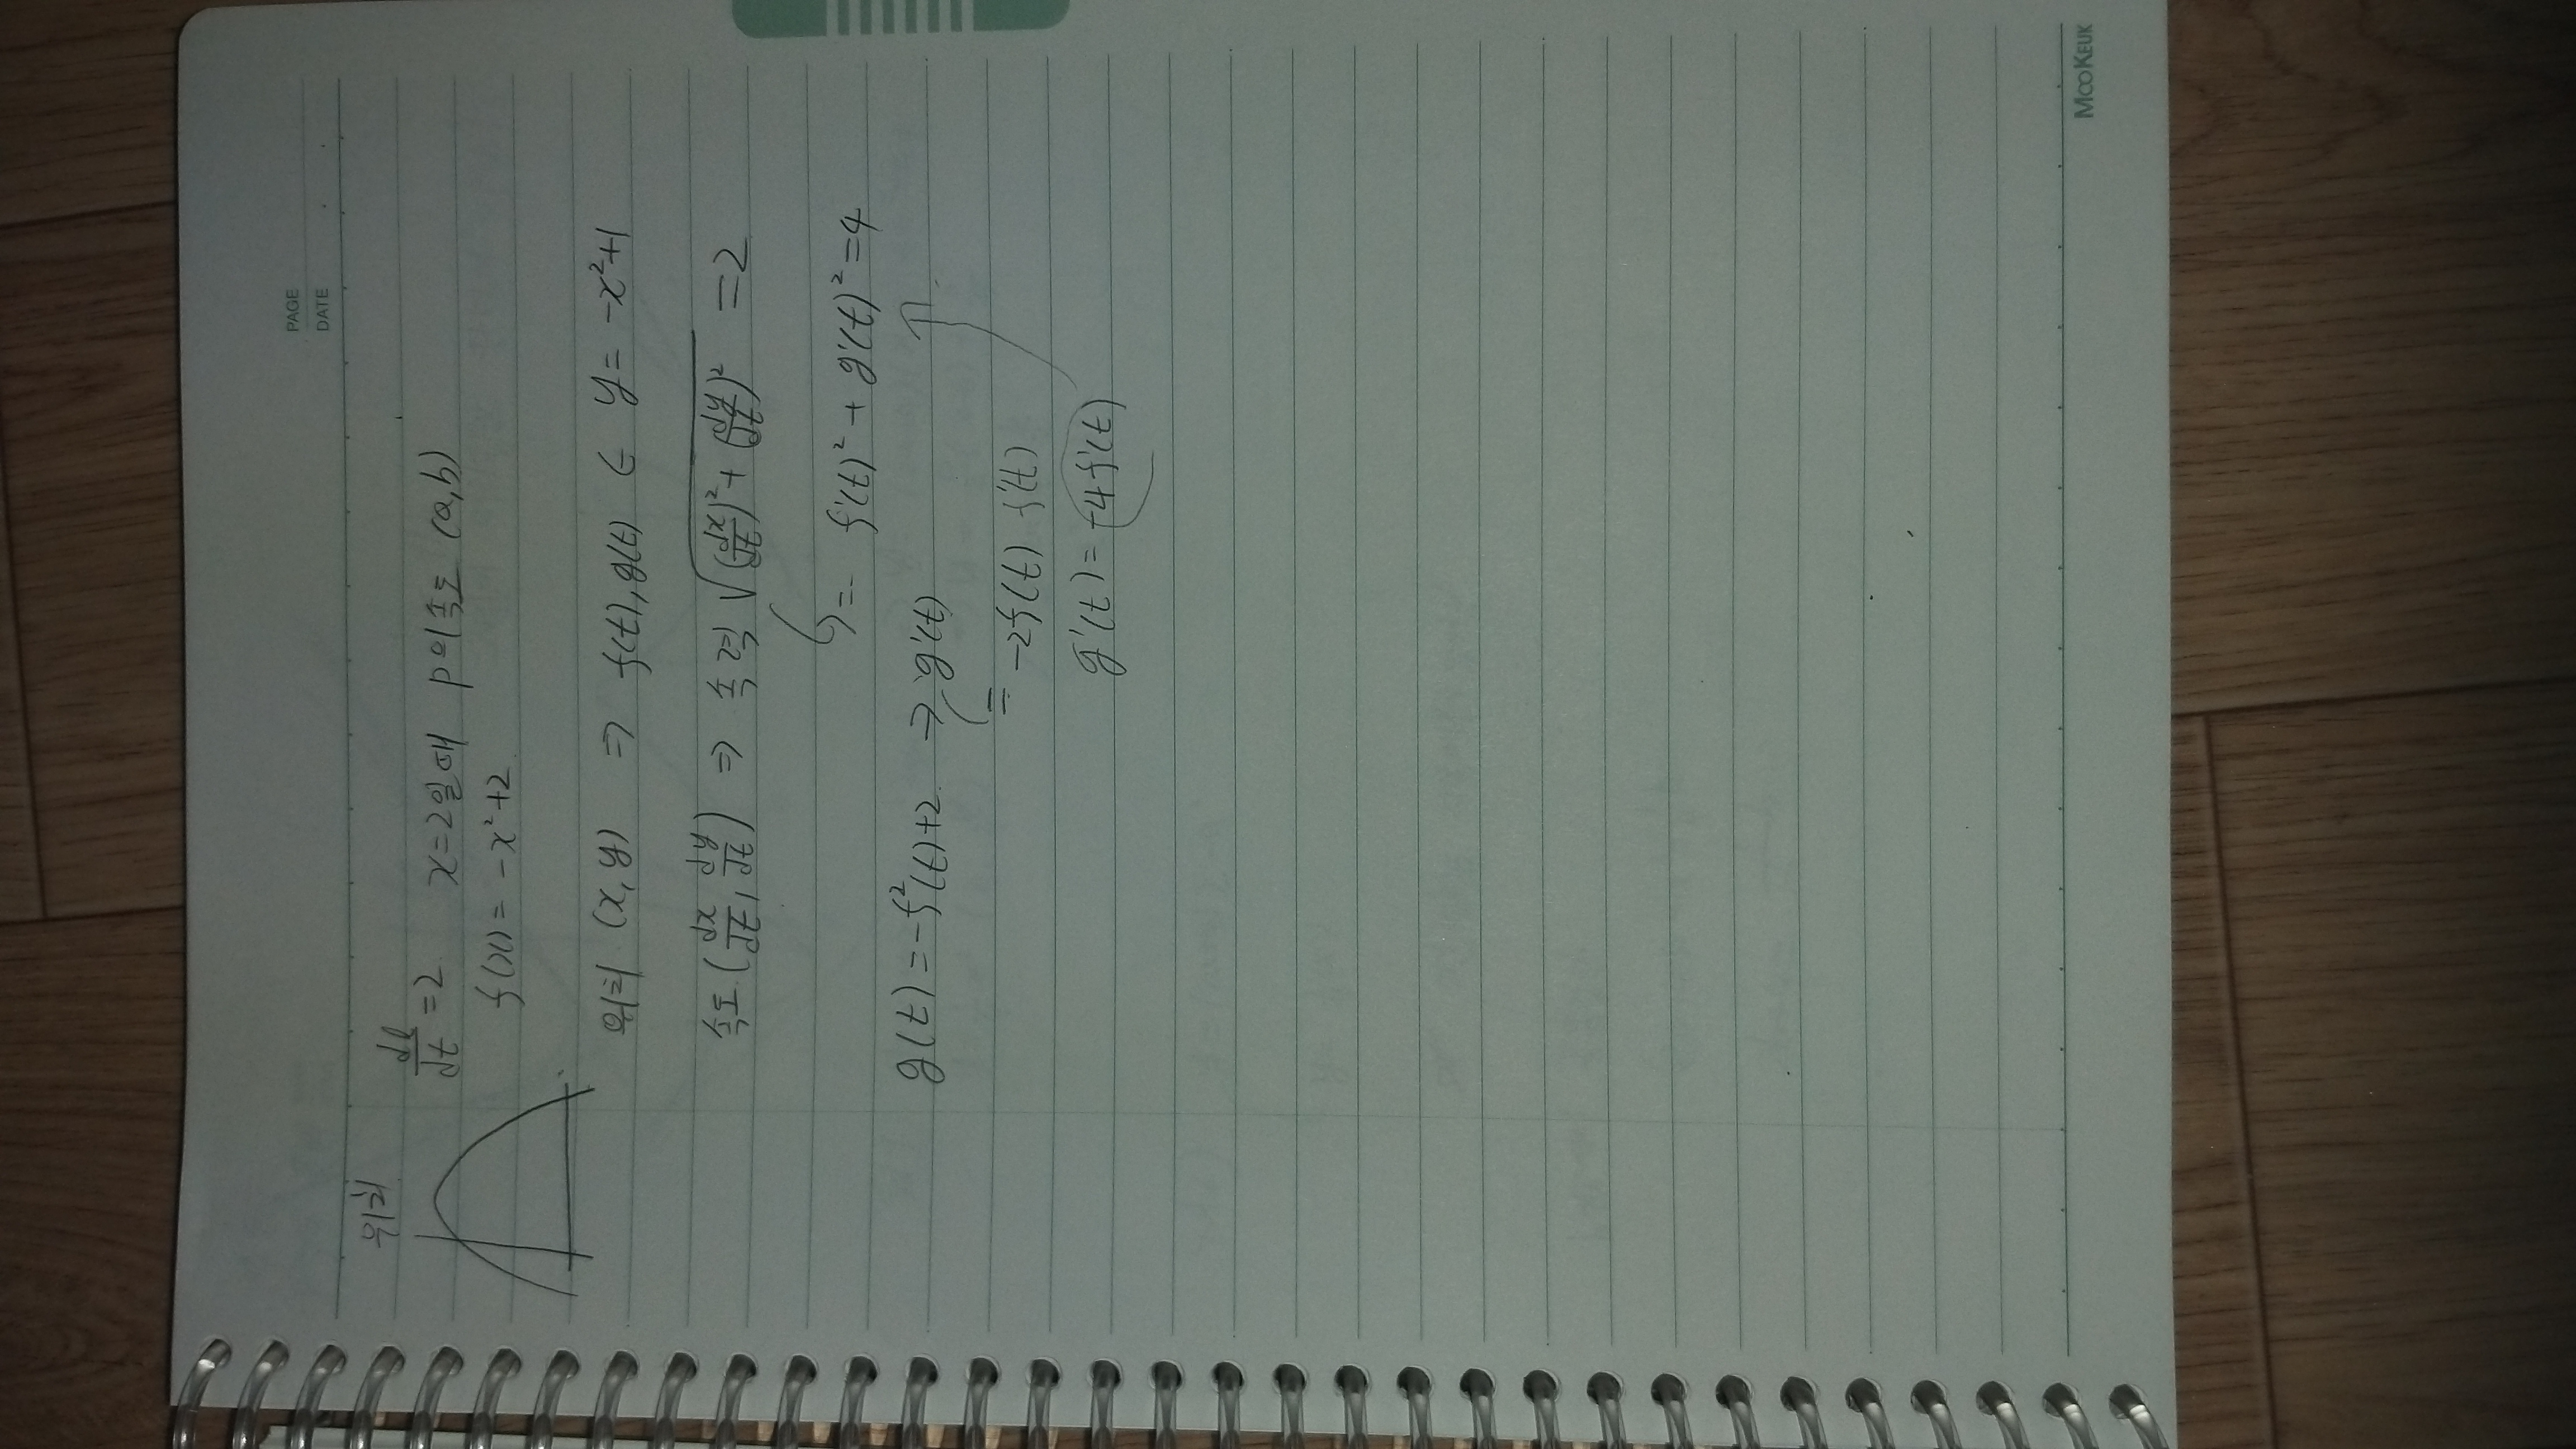 PAGE
DATE
위치
dl/dt = 2 x=2일때 P의 속도 (a,b)
f(x) = -x²+2
위치 (x, y) ⇒ f(t), g(t) ∈ y = -x²+1
속도 (dx/dt, dy/dt) ⇒ 속력 √((dx/dt)² + (dy/dt)²) = 2
= f'(t)² + g'(t)² = 4
g(t) = -f²(t)+2 ⇒ g'(t)
= -2f(t) f'(t)
g'(t) = -4f'(t)
MOOKEUK